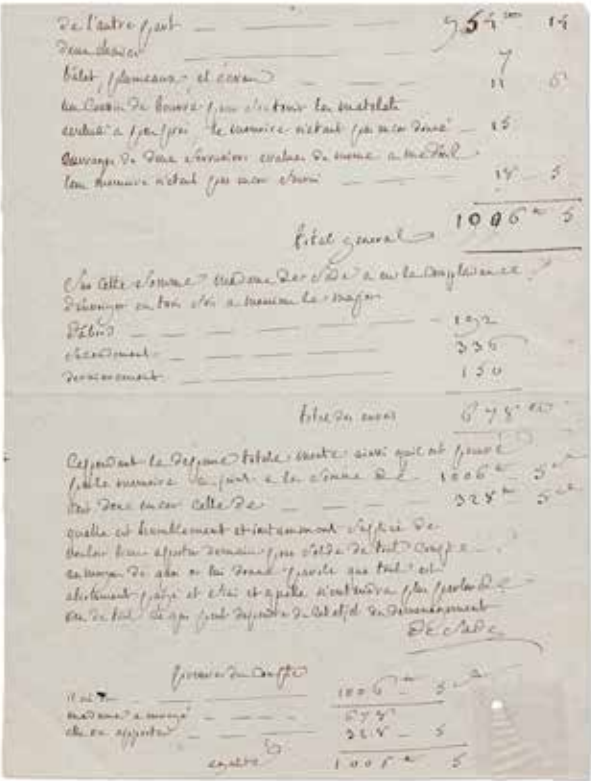 de l'autre part 954 14
deux chaises 7
balet, plumeaux, et écran 11 6
un Cossin de bourre pour soutenir les matelats
evalué a peu pres, le memoire n'etant pas encor donné 15
ouvrages de deux Serruriers evalués de meme
leur memoire n'etant pas encor 18 5
total general 1006 5
Sur cette Somme madame de Sade a eu la complaisance
d'envoyer en trois fois a monsieur le major
d'abord 192
secondement 336
dernierement 150
total des envois 678
Cependant la depense totale monte ainsi qu'il est prouvé
par le memoire a la Somme de 1006 5
doit donc encor celle de 328 5
quelle est humblement et instamment Supliée de
vouloir bien aporter demain pour Solde de tout Compte
au moyen de quoi on lui donne parole que tout est
absolument payé et qu'elle n'entendra plus parler de
de tout ce qui peut dependre de cet objet du demenagement
De Sade
preuve du Compte
1006 5
madame a envoyé 678
elle en apportera 328 5
egalité 1006 5